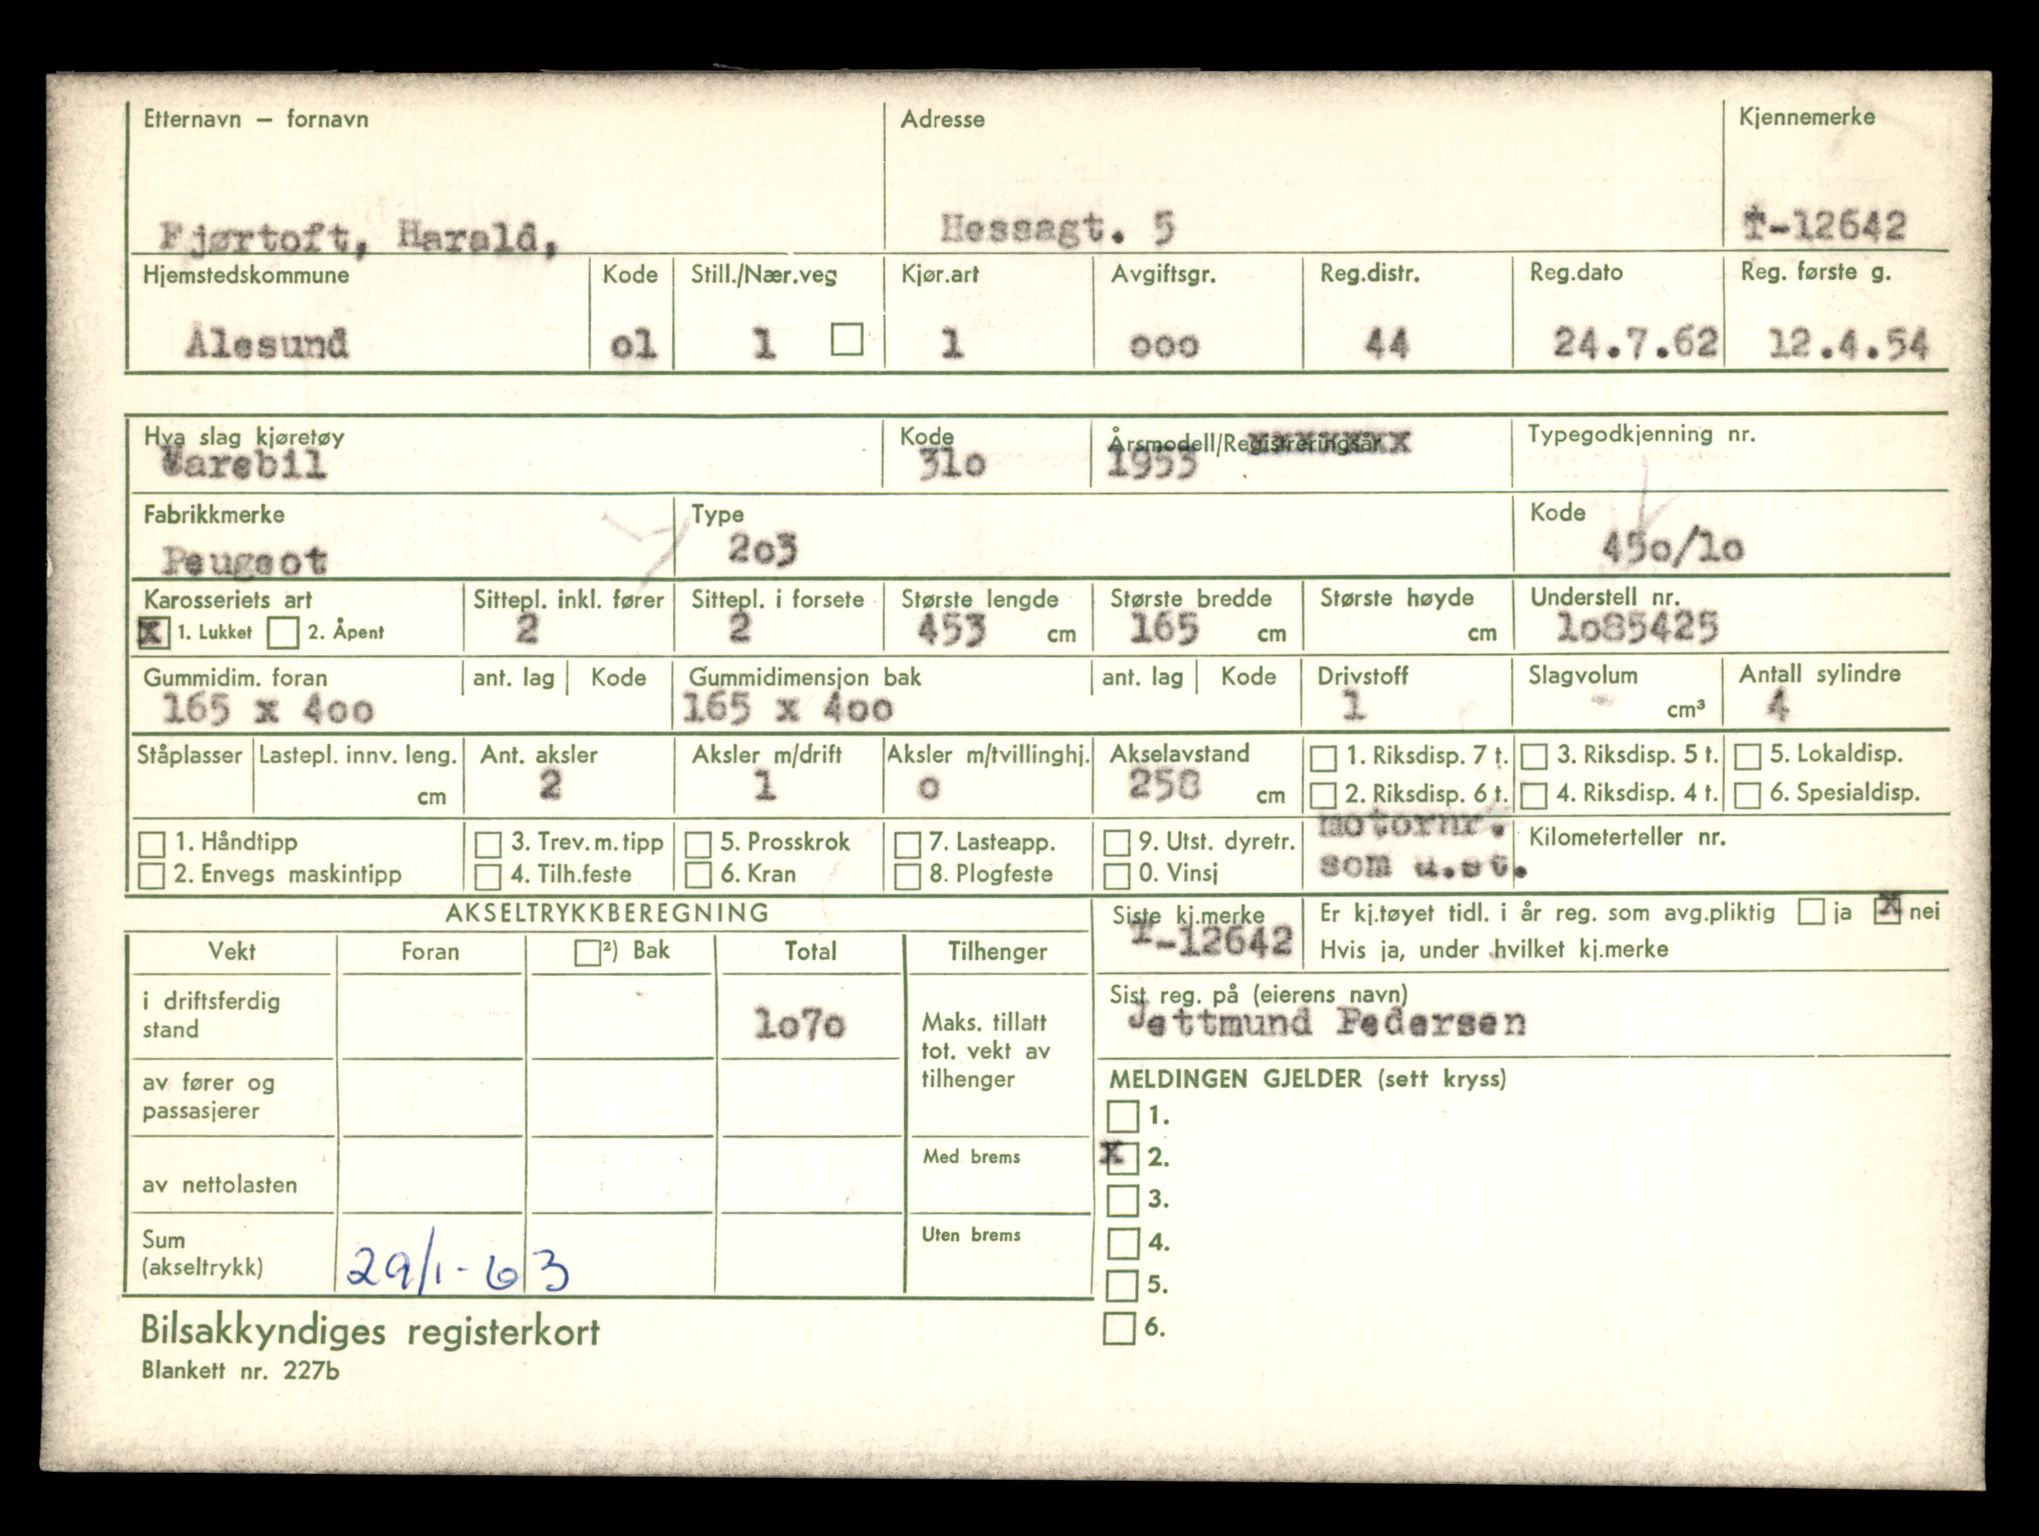 Etternavn — fornavn Adresse Kjennemerke
Fjørtoft, Harald, Hessagt. 5 T-12642
Hjemstedskommune Kode Still./Nær.veg Kjør.art Avgiftsgr. Reg.distr. Reg.dato Reg. første g.
Ålesund o1 1 1 ooo 44 24.7.62 12.4.54
Hva slag kjøretøy Kode Årsmodell/Registreringsår Typegodkjenning nr.
Varebil 31o 1953
Fabrikkmerke Type Kode
Peugeot 2o3 45o/1o
Karosseriets art Sittepl. inkl. fører Sittepl. i forsete Største lengde Største bredde Største høyde Understell nr.
X 1. Lukket 2. Åpent 2 2 453 cm 165 cm cm 1o85425
Gummidim. foran ant. lag Kode Gummidimensjon bak ant. lag Kode Drivstoff Slagvolum Antall sylindre
165 x 4oo 165 x 4oo 1 - cm³ 4
Ståplasser Lastepl. innv. leng. Ant. aksler Aksler m/drift Aksler m/tvillinghj. Akselavstand 1. Riksdisp. 7 t. 3. Riksdisp. 5 t. 5. Lokaldisp.
cm 2 1 o 258 cm 2. Riksdisp. 6 t. 4. Riksdisp. 4 t. 6. Spesialdisp.
1. Håndtipp 3. Trev. m. tipp 5. Prosskrok 7. Lasteapp. 9. Utst. dyretr. motornr. Kilometerteller nr.
2. Envegs maskintipp 4. Tilh.feste 6. Kran 8. Plogfeste 0. Vinsj som u.st.
AKSELTRYKKBEREGNING Siste kj.merke Er kj.tøyet tidl. i år reg. som avg.pliktig ja X nei
T-12642
Vekt Foran ²) Bak Total Tilhenger Hvis ja, under hvilket kj.merke
i driftsferdig Sist reg. på (eierens navn)
stand 1o7o Maks. tillatt Jettmund Pedersen
tot. vekt av
av fører og tilhenger MELDINGEN GJELDER (sett kryss)
passasjerer 1.
Med brems X 2.
av nettolasten 3.
Sum Uten brems 4.
(akseltrykk) 29/1-63 5.
Bilsakkyndiges registerkort 6.
Blankett nr. 227b